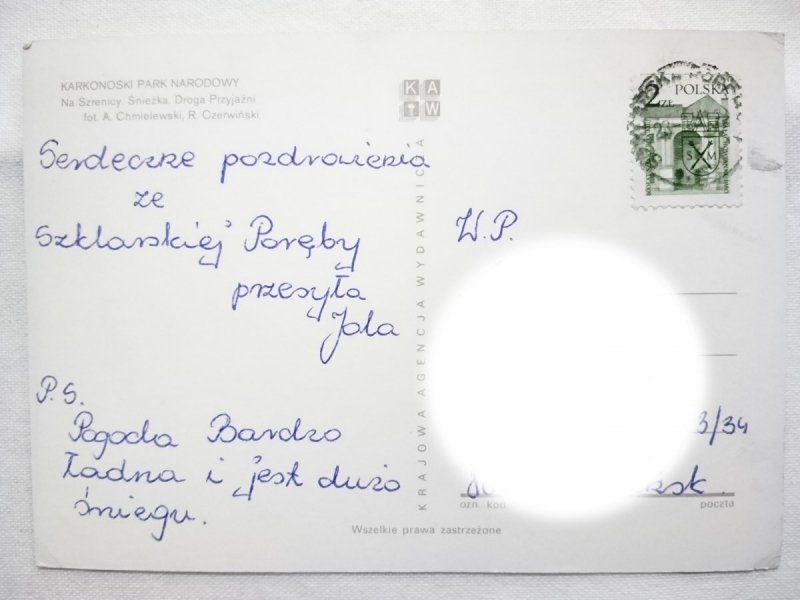 KARKONOSKI PARK NARODOWY
Na Szrenicy. Śnieżka. Droga Przyjaźni
fot. A. Chmielewski, R. Czerwiński
K A
W
Serdeczne pozdrowienia
ze
Szklarskiej Poręby
przesyła
Jola
P.S.
Pogoda Bardzo
Ładna i jest dużo
śniegu.
KRAJOWA AGENCJA WYDAWNICZA
Wszelkie prawa zastrzeżone
2 ZŁ POLSKA
S M
W.P.
3/34
ozn. kod
poczta